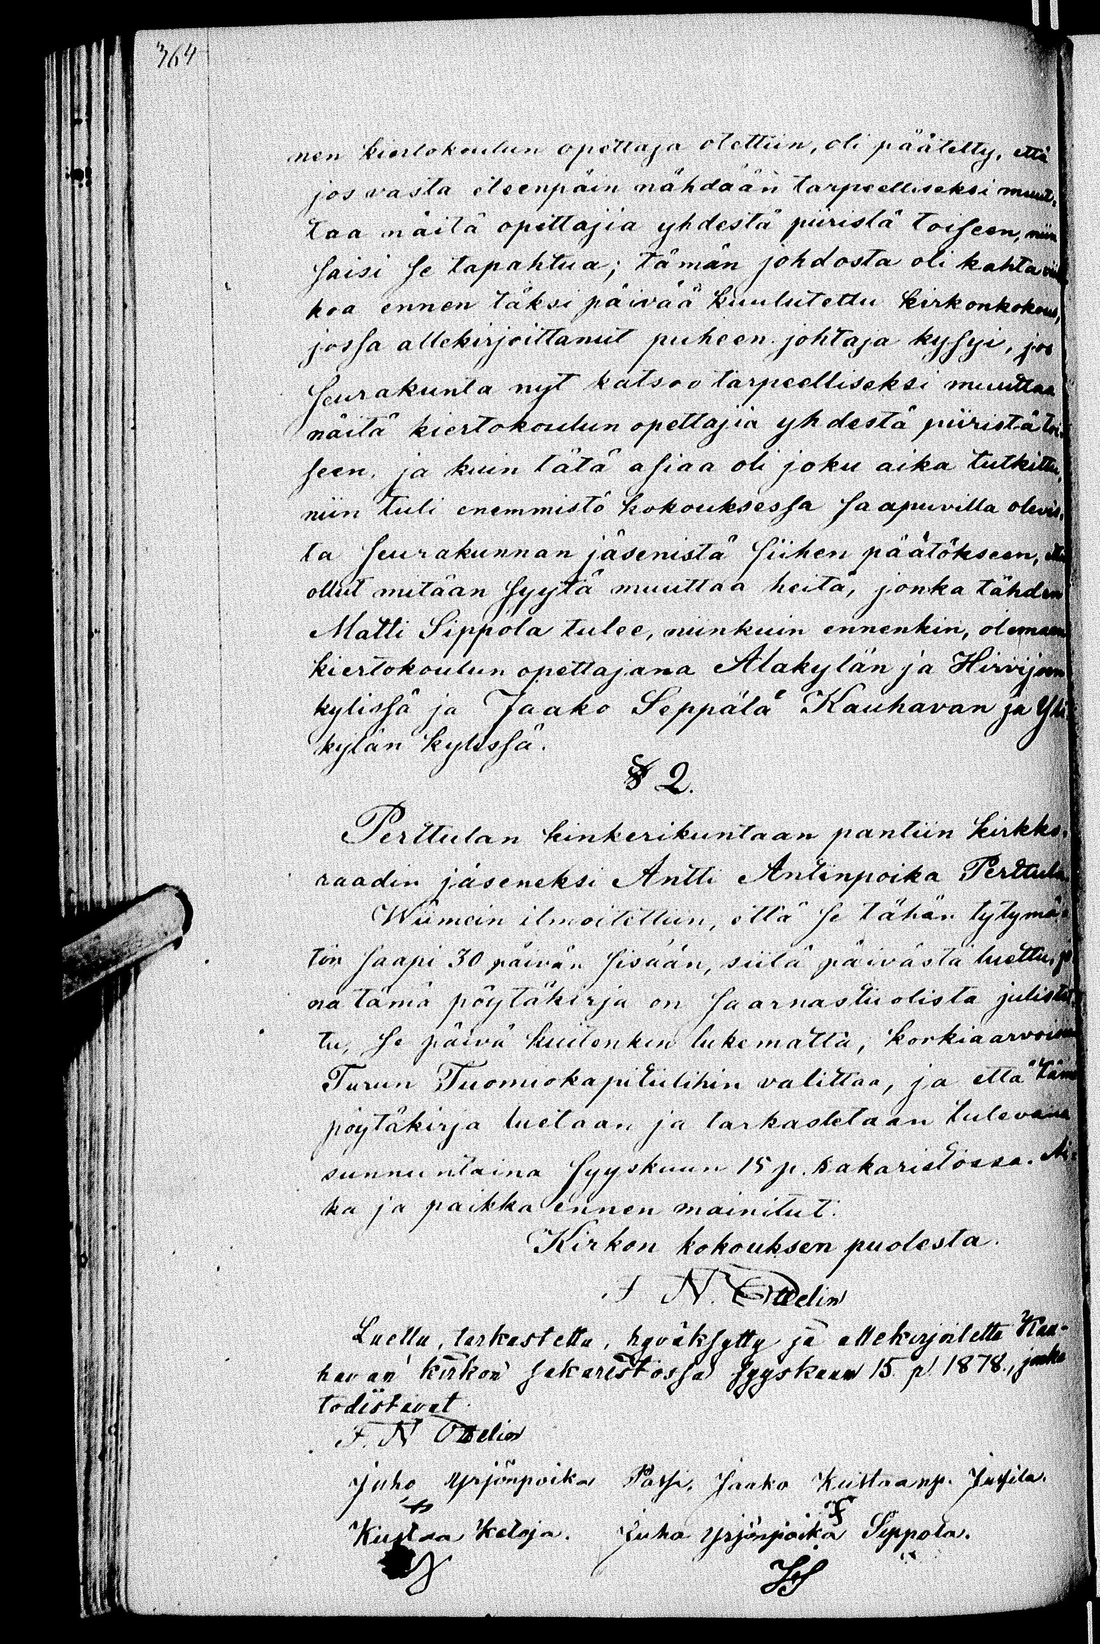 364
nen kiertokoulun opettaja otettiin, oli päätetty, että
jos vasta eteenpäin nähdään tarpeelliseksi muut-
taa näitä opettajia yhdestä piiristä toiseen, niin
saisi se tapahtua; tämän johdosta oli kahta vii
koa ennen täksi päivää kuulutettu kirkonkokous,
jossa allekirjoittanut puheen johtaja kysyi, jos
seurakunta nyt katsoo tarpeelliseksi muuttaa
näitä kiertokoulun opettajia yhdestä piiristä toi-
seen, ja kuin tätä asiaa oli joku aika tutkittu,
niin tuli enemmistö kokouksessa saapuvilla olevis-
ta seurakunnan jäsenistä siihen päätökseen,
ollut mitään syytä muuttaa heitä, jonka tähden
Matti Sippola tulee, niinkuin ennenkin, olemaan
kiertokoulun opettajana Alakylän ja Hirvijoen
kylissä ja Jaako Seppälä Kauhavan ja Yli
kylän kylissä.
§ 2.
Perttulan kinkerikuntaan pantiin kirkko-
raadin jäseneksi Antti Antinpoika Perttula.
Wiimein ilmoitettiin, että se tähän tytymä-
tön saapi 30 päivän sisään, siitä päivästä luettu, jo
na tämä pöytäkirja on saarnastuolista julistet
tu, se päivä kuitenkin lukematta, korkiaarvoisen
Turun Tuomiokapituliihin valittaa, ja että tämä
pöytäkirja luetaan ja tarkastetaan tulevana
sunnuntaina syyskuun 15 p. sakaristossa. Ai-
ka ja paikka ennen mainitut.
Kirkon kokouksen puolesta.
F. N. Ottelin
Luettu, tarkastettu, hyväksytty ja allekirjoitettu Kau-
havan kirkon sakaristossa syyskuun 15 p. 1878, jonka
todistavat.
F. N Ottelin
Juho Yrjönpoika Passi. Jaako Kustaanp.
Kustaa Ketoja. Juho Yrjönpoika Sippola.